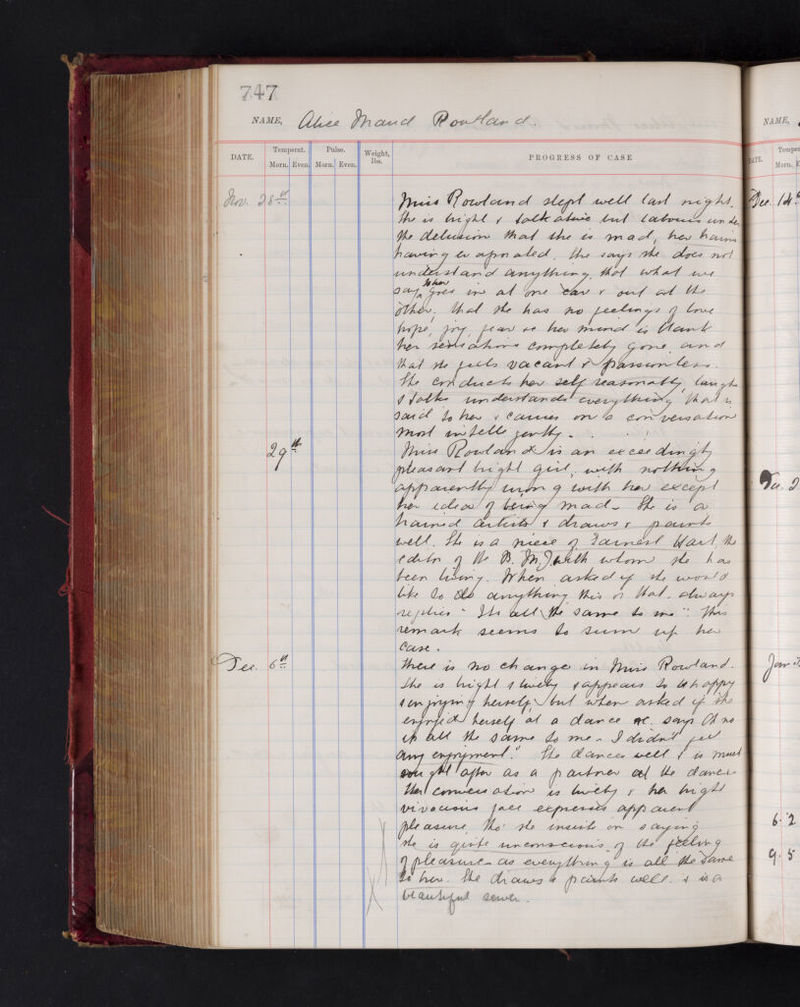 747
NAME, Alice Maud Rowland.
DATE. Temperat. Pulse. Weight, lbs. PROGRESS OF CASE
Morn. Even. Morn. Even.
Nov. 28th Miss Rowland slept well last night.
She is bright & talkative but labours under
the delusion that she is mad, her brains
having evaporated. She says she does not
understand anything, that what we
say to her goes in at one ear & out at the
other, that she has no feelings of love
hope, joy, fear as her mind is blank
her sensations completely gone and
that she feels vacant & passionless.
She conducts herself reasonably, laughs
& talks understands everything that is
said to her & carries on a conversation
most intelligently.
29th Miss Rowland is an exceedingly
pleasant bright girl, with nothing
apparently wrong with her except
her idea of being mad. She is a
trained artist & draws & paints
well. She is a niece of Earnest Hart, the
editor of the B. M. J with whom she has
been living. When asked if she would
like to do anything this or that. always
replies "Its all the same to me". This
remark seems to sum up her
case.
Dec. 6th There is no change in Miss Rowland.
She is bright & lively & appears to be happy
& enjoying herself, but when asked if she
enjoyed herself at a dance says Oh no
its all the same to me - I didn't feel
any enjoyment." She dances well & is much
sought after as a partner at the dances
Her conversation is lively & her bright
vivacious face expresses apparent
pleasure, tho' she insists on saying
she is quite unconscious of the feeling
of pleasure - as everything is all the same
to her. She draws & paints well & is a
beautiful sewer.
NAME,
DATE. Morn.
Dec. 14th
Jan
6. 2
9. 5